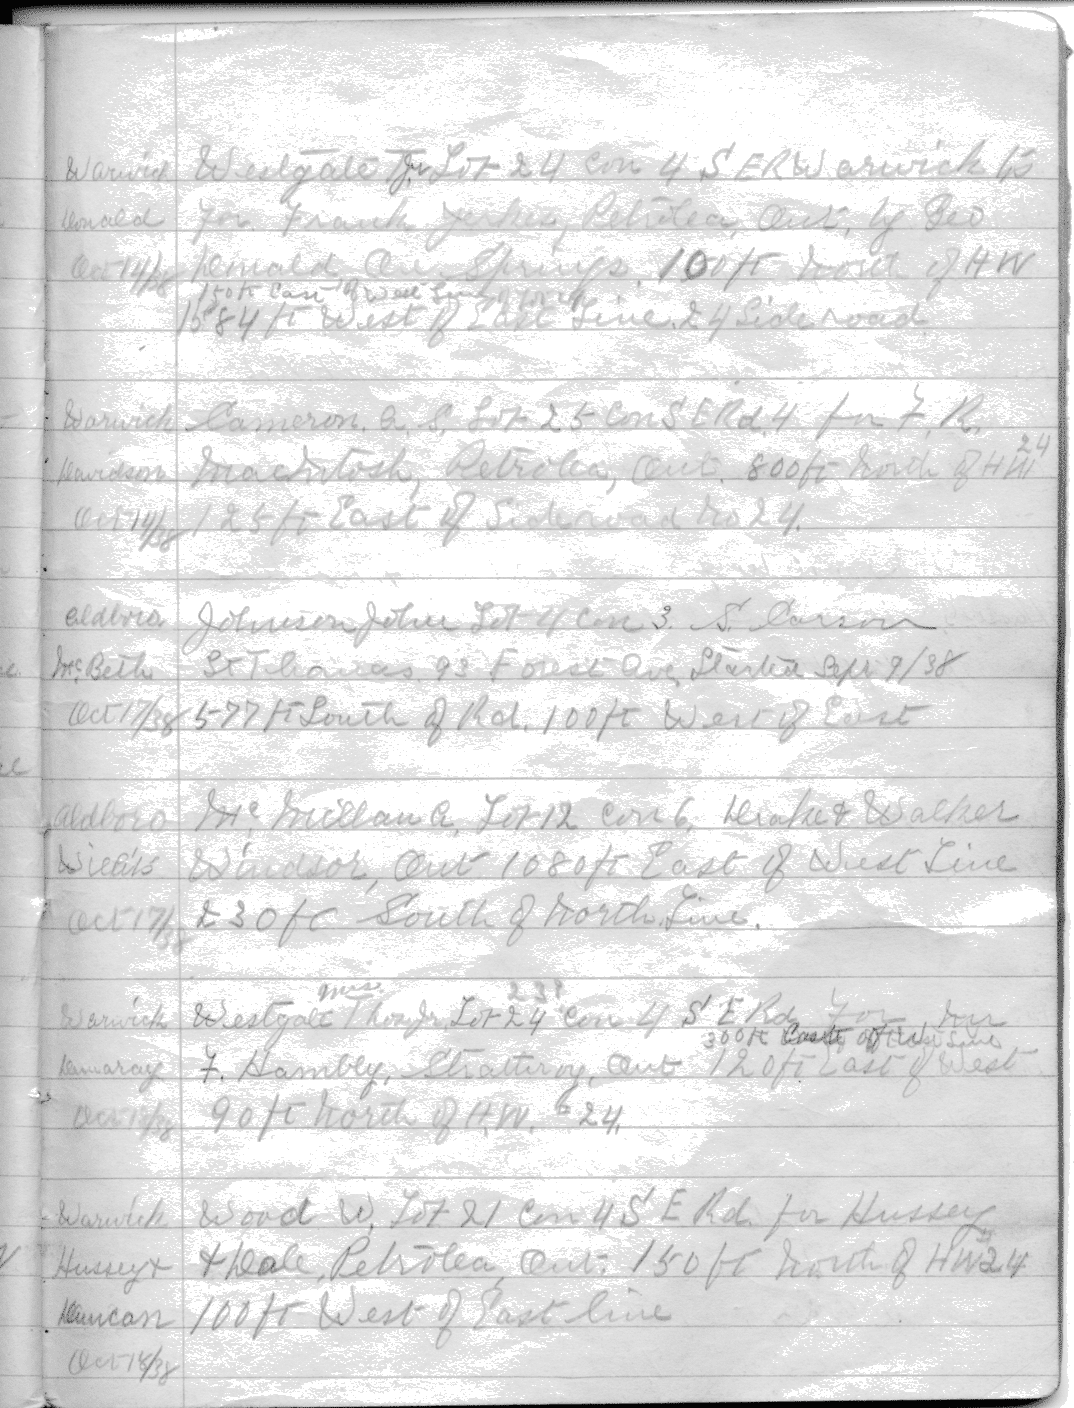 Warwick Westgate Tr. Lot 24 Con 4 S E R Warwick
Donald for Frank Petrolea, Ont. by Geo
Oct 14/38 Donald Oil Springs. 100ft North of HW
150ft East of West Line
1584 ft West of East Line. 24 Sideroad
Warwick Cameron. A. S. Lot 25 Con S E Rd. 4 for F. R.
24
Davidson MacIntosh, Petrolea, Ont. 800ft North of HW
Oct 14/38 125 ft East of Sideroad No 24.
Aldboro Johnson John Lot 4 Con 3. S. Carson
McBeth St Thomas 93 Forest Ave, Started Sept 9/38
Oct 17/38 577 ft South of Rd. 100ft West of East
Aldboro McMillan A, Lot 12 Con 6, Drake & Walker
Windsor, Ont 1080ft East of West Line
Oct 17/38 230ft South of North Line.
Mrs.
Warwick Westgate Thos Jr. Lot 24 Con 4 S E Rd. For
300ft East of W. Line
F. Hambly, Strathroy, Ont 120ft East of West
90ft North of H.W. 24.
Warwick Wood W, Lot 21 Con 4 S E Rd. for Hussey
Hussey & & Dale, Petrolea, Ont. 150 ft North of HW 24
Duncan 100ft West of East line
Oct 18/38